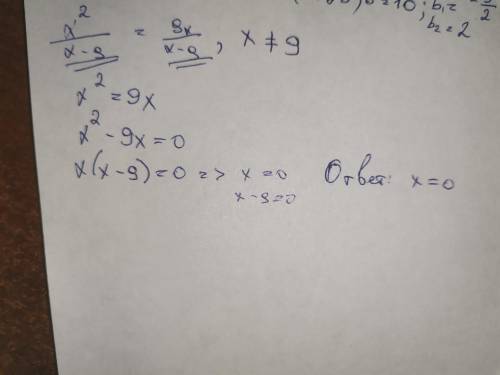 b₁ = -5/2
b₂ = 2
x²/(x-9) = 9x/(x-9), x ≠ 9
x² = 9x
x² - 9x = 0
x(x-9) = 0 => x = 0 Ответ: x = 0
x-9=0